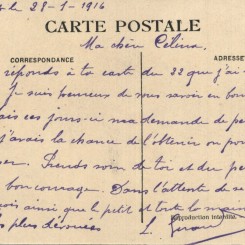 le 28-1-1916
CARTE POSTALE
Ma chère Célina.
CORRESPONDANCE
ADRESSE
réponds à ta carte du 22 que j'ai
je suis heureux de vous savoir en bon
ces jours-ci ma demande de pe
j'avais la chance de l'obtenir ou po
Prends soin de toi et du pe
bon courage. Dans l'attente de
ainsi que le petit et toute la
plus dévoués
Reproduction interdite.